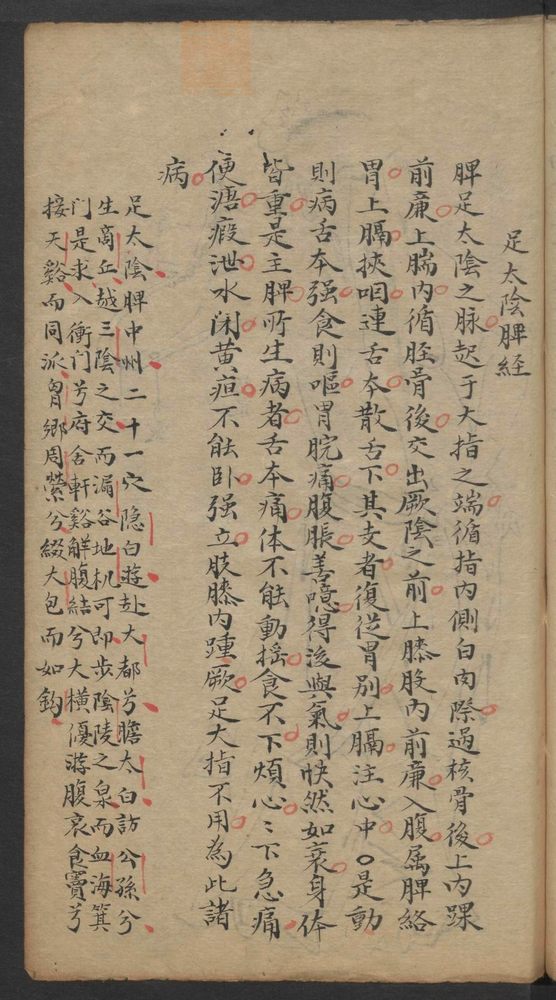 足太陰脾経
脾足太陰之脉起于大指之端循指内側白肉際過核骨後上内踝
前廉上腨内循脛骨後交出厥陰之前上膝股内前廉入腹属脾絡
胃上膈挾咽連舌本散舌下其支者復従胃別上膈注心中○是動
則病舌本强食則嘔胃脘痛腹脹善噫得後與氣則快然如衰身体
皆重是主脾所生病者舌本痛体不能動揺食不下煩心〻下急痛
便溏瘕泄水闭黄疸不能卧强立股膝内踵厥足大指不用為此諸
病
足太陰脾中州二十一穴隐白遊赴大都兮瞻太白訪公孫兮
生商丘越三陰之交而漏谷地机可即步陰陵之泉而血海箕
门是求入衝门兮府舍軒谿解腹結兮大横優游腹哀食竇兮
接天谿而同派胷郷周榮兮綴大包而如鈎